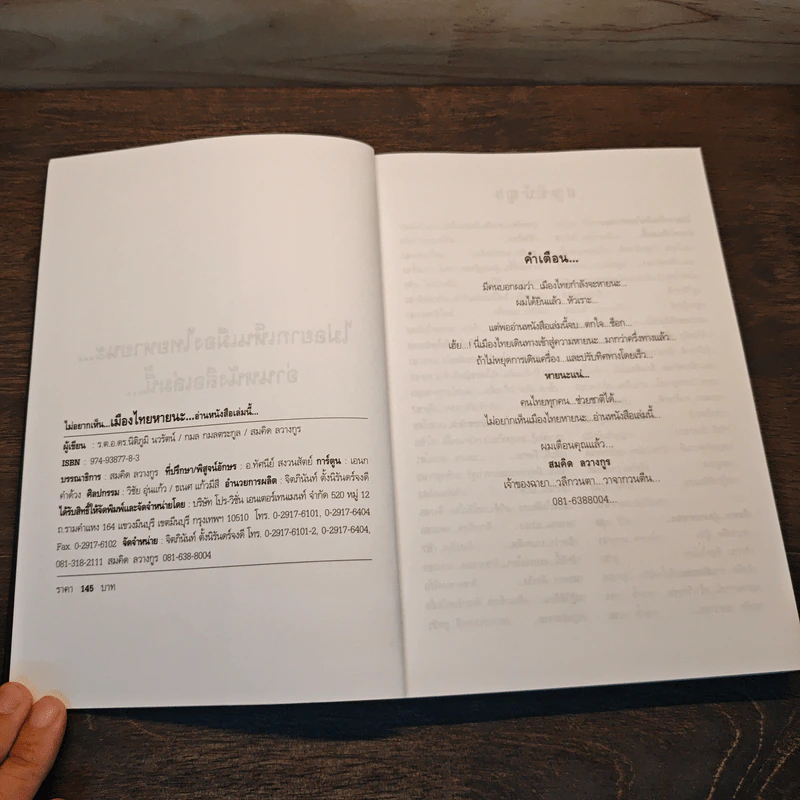 ไม่อยากเห็น...เมืองไทยหายนะ...อ่านหนังสือเล่มนี้...
ผู้เขียน : ร.ต.อ.ดร.นิติภูมิ นวรัตน์ / กมล กมลตระกูล / สมคิด ลวางกูร
ISBN : 974-93877-8-3
บรรณาธิการ : สมคิด ลวางกูร ที่ปรึกษา/พิสูจน์อักษร : อ.ทัศนีย์ สงวนสัตย์ การ์ตูน : เอนก
คำด้วง ศิลปกรรม : วิชัย อุ่นแก้ว / ธเนศ แก้วมีสี อำนวยการผลิต : จิตภินันท์ ตั้งนิรันดร์จงดี
ได้รับสิทธิ์ให้จัดพิมพ์และจัดจำหน่ายโดย : บริษัท โปร-วิชั่น เอนเตอร์เทนเมนท์ จำกัด 520 หมู่ 12
ถ.รามคำแหง 164 แขวงมีนบุรี เขตมีนบุรี กรุงเทพฯ 10510 โทร. 0-2917-6101, 0-2917-6404
Fax. 0-2917-6102 จัดจำหน่าย : จิตภินันท์ ตั้งนิรันดร์จงดี โทร. 0-2917-6101-2, 0-2917-6404,
081-318-2111 สมคิด ลวางกูร 081-638-8004
ราคา 145 บาท
คำเตือน...
มีคนบอกผมว่า...เมืองไทยกำลังจะหายนะ...
ผมได้ยินแล้ว...หัวเราะ...
แต่พออ่านหนังสือเล่มนี้จบ...ตกใจ...ช็อก...
เฮ้ย...! นี่เมืองไทยเดินทางเข้าสู่ความหายนะ...มากว่าครึ่งทางแล้ว...
ถ้าไม่หยุดการเดินเครื่อง...และปรับทิศทางโดยเร็ว...
หายนะแน่...
คนไทยทุกคน...ช่วยชาติได้...
ไม่อยากเห็นเมืองไทยหายนะ...อ่านหนังสือเล่มนี้...
ผมเตือนคุณแล้ว...
สมคิด ลวางกูร
เจ้าของฉายา...วลีกวนตา...วาจากวนตีน...
081-6388004...